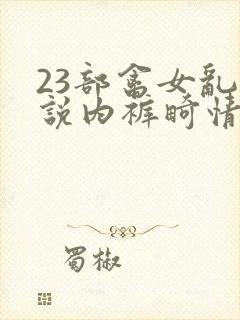 23部畜女乱
説内裤畸情
蜀椒